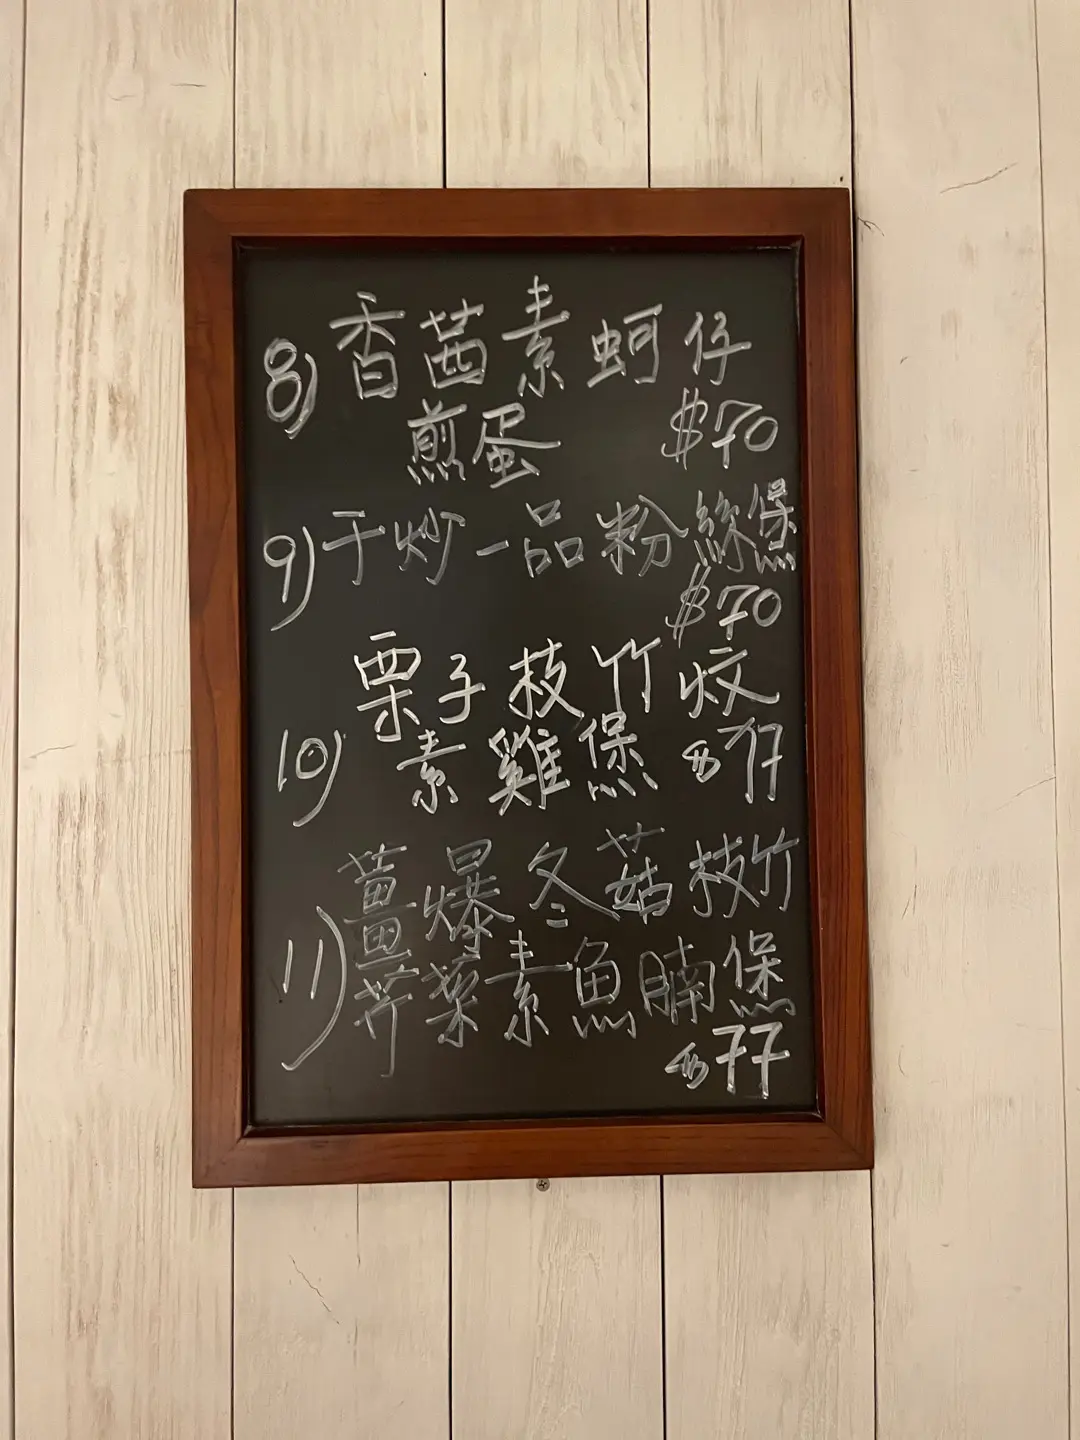 8) 香茜素蚵仔
煎蛋 $70
9) 干炒一品粉絲煲
$70
栗子枝竹炆
10) 素雞煲 $77
薑爆冬菇枝竹
11) 芹菜素魚腩煲
$77